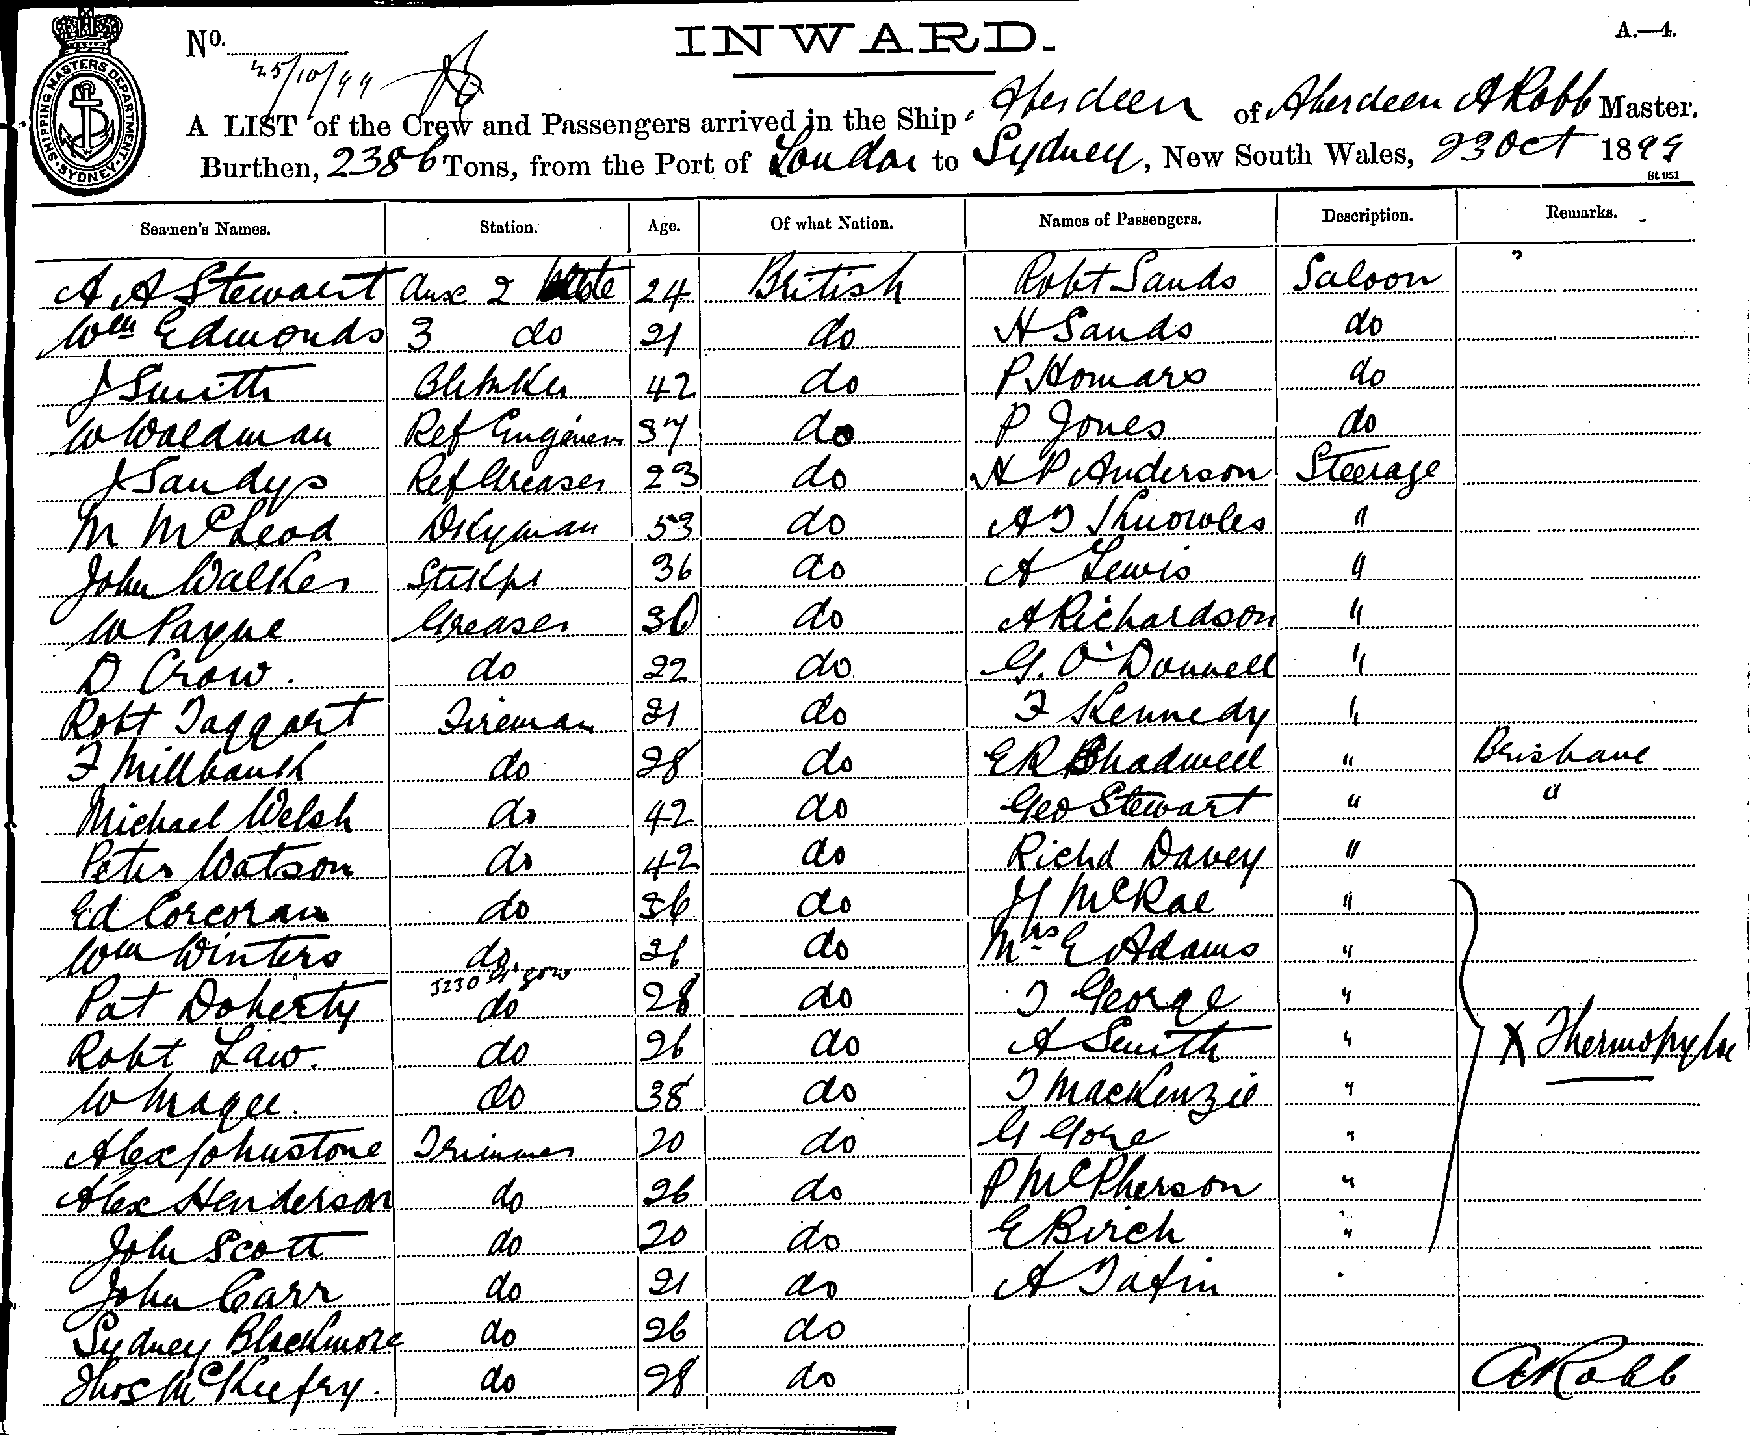 SHIPPING MASTERS DEPARTMENT SYDNEY
No.
INWARD.
A.—4.
25/10/99
A LIST of the Crew and Passengers arrived in the Ship Aberdeen of Aberdeen A Robb Master.
Burthen, 2386 Tons, from the Port of London to Sydney, New South Wales, 23 Oct 1899
Seamen's Names. Station. Age. Of what Nation. Names of Passengers. Description. Remarks.
A A Stewart 2 24 British Robt Sands Saloon
Wm Edmonds 3 do 21 do H Sands do
J Smith 42 do P Homars do
W Waldman Ref Engineer 37 do P Jones do
J Sandys Ref Greaser 23 do A P Anderson Steerage
M McLeod Dkyman 53 do A J Knowles "
John Walker Stkpr 36 do A Lewis "
W Payne Greaser 30 do A Richardson "
D Crow. do 22 do G. O'Donnell "
Robt Taggart Fireman 21 do F Kennedy "
F Millbank do 28 do E R Chadwell " Brisbane
Michael Welsh do 42 do Geo Stewart " "
Peter Watson do 42 do Richd Davey "
Ed Corcoran do 36 do McRae "
Wm Winters do 26 do Mrs E Adams "
Pat Doherty do 28 do T George "
Robt Law. do 26 do A Smith " X Thermopylae
W Magee. do 38 do T MacKenzie "
Alex Johnstone Trimmer 20 do G Gore "
Alex Henderson do 26 do P McPherson "
John Scott do 20 do E Birch "
John Carr do 21 do A
Sydney Blackmore do 26 do
Thos McKeefry. do 28 do A Robb